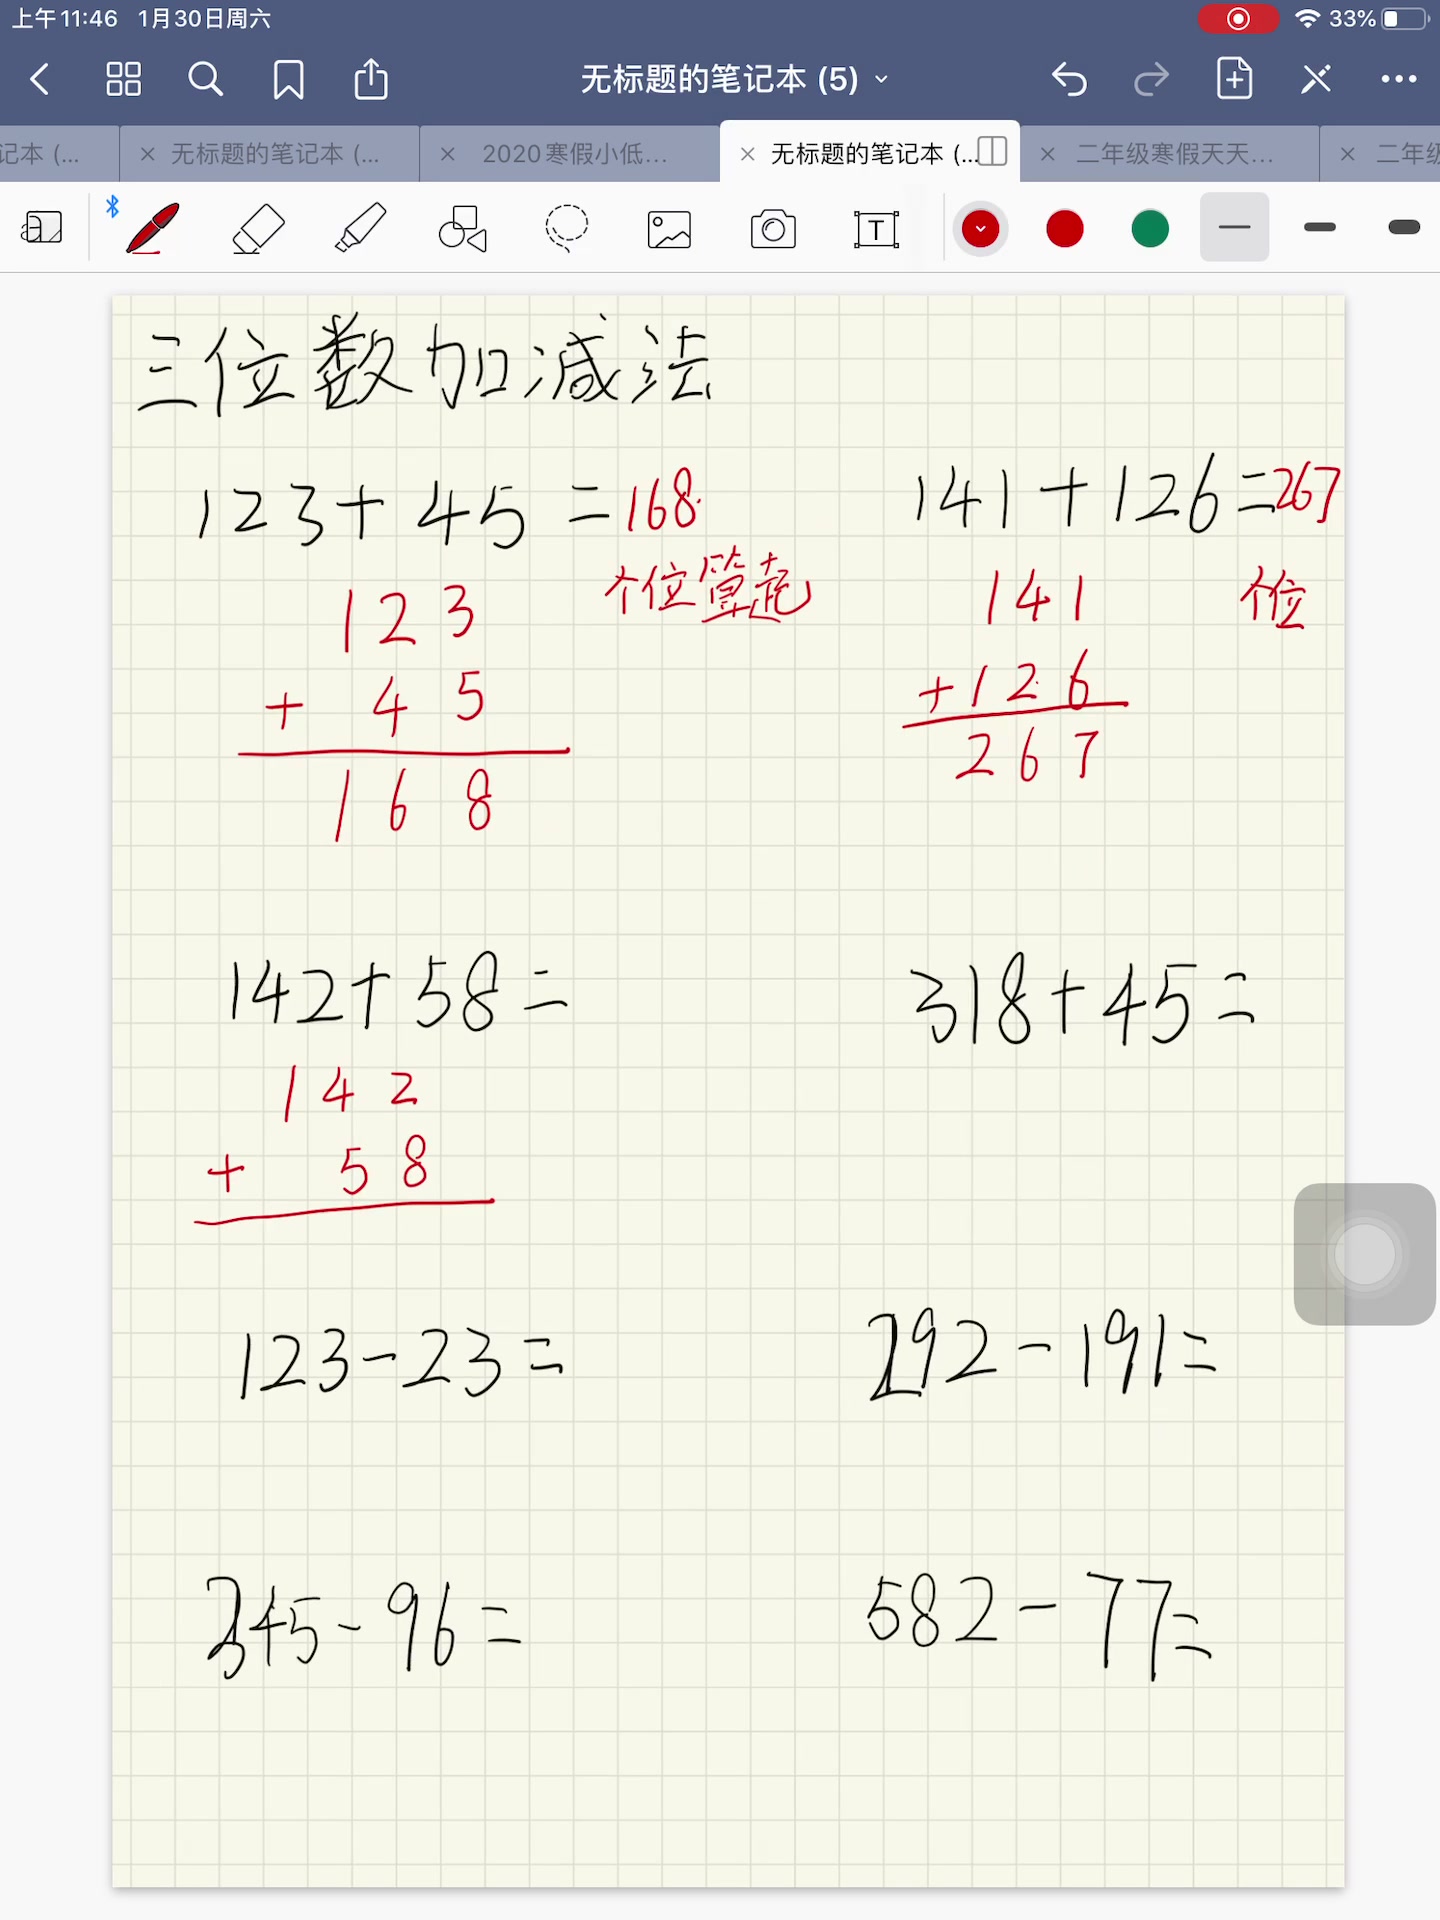 上午11:46 1月30日周六 33%
无标题的笔记本 (5)
记本 (... × 无标题的笔记本 (... × 2020寒假小低... × 无标题的笔记本 (... × 二年级寒假天天... × 二年级
三位数加减法
123+45=168 141+126=267
个位算起 个位
123 141
+ 45 +126
168 267
142+58= 318+45=
142
+ 58
123-23= 292-191=
345-96= 582-77=